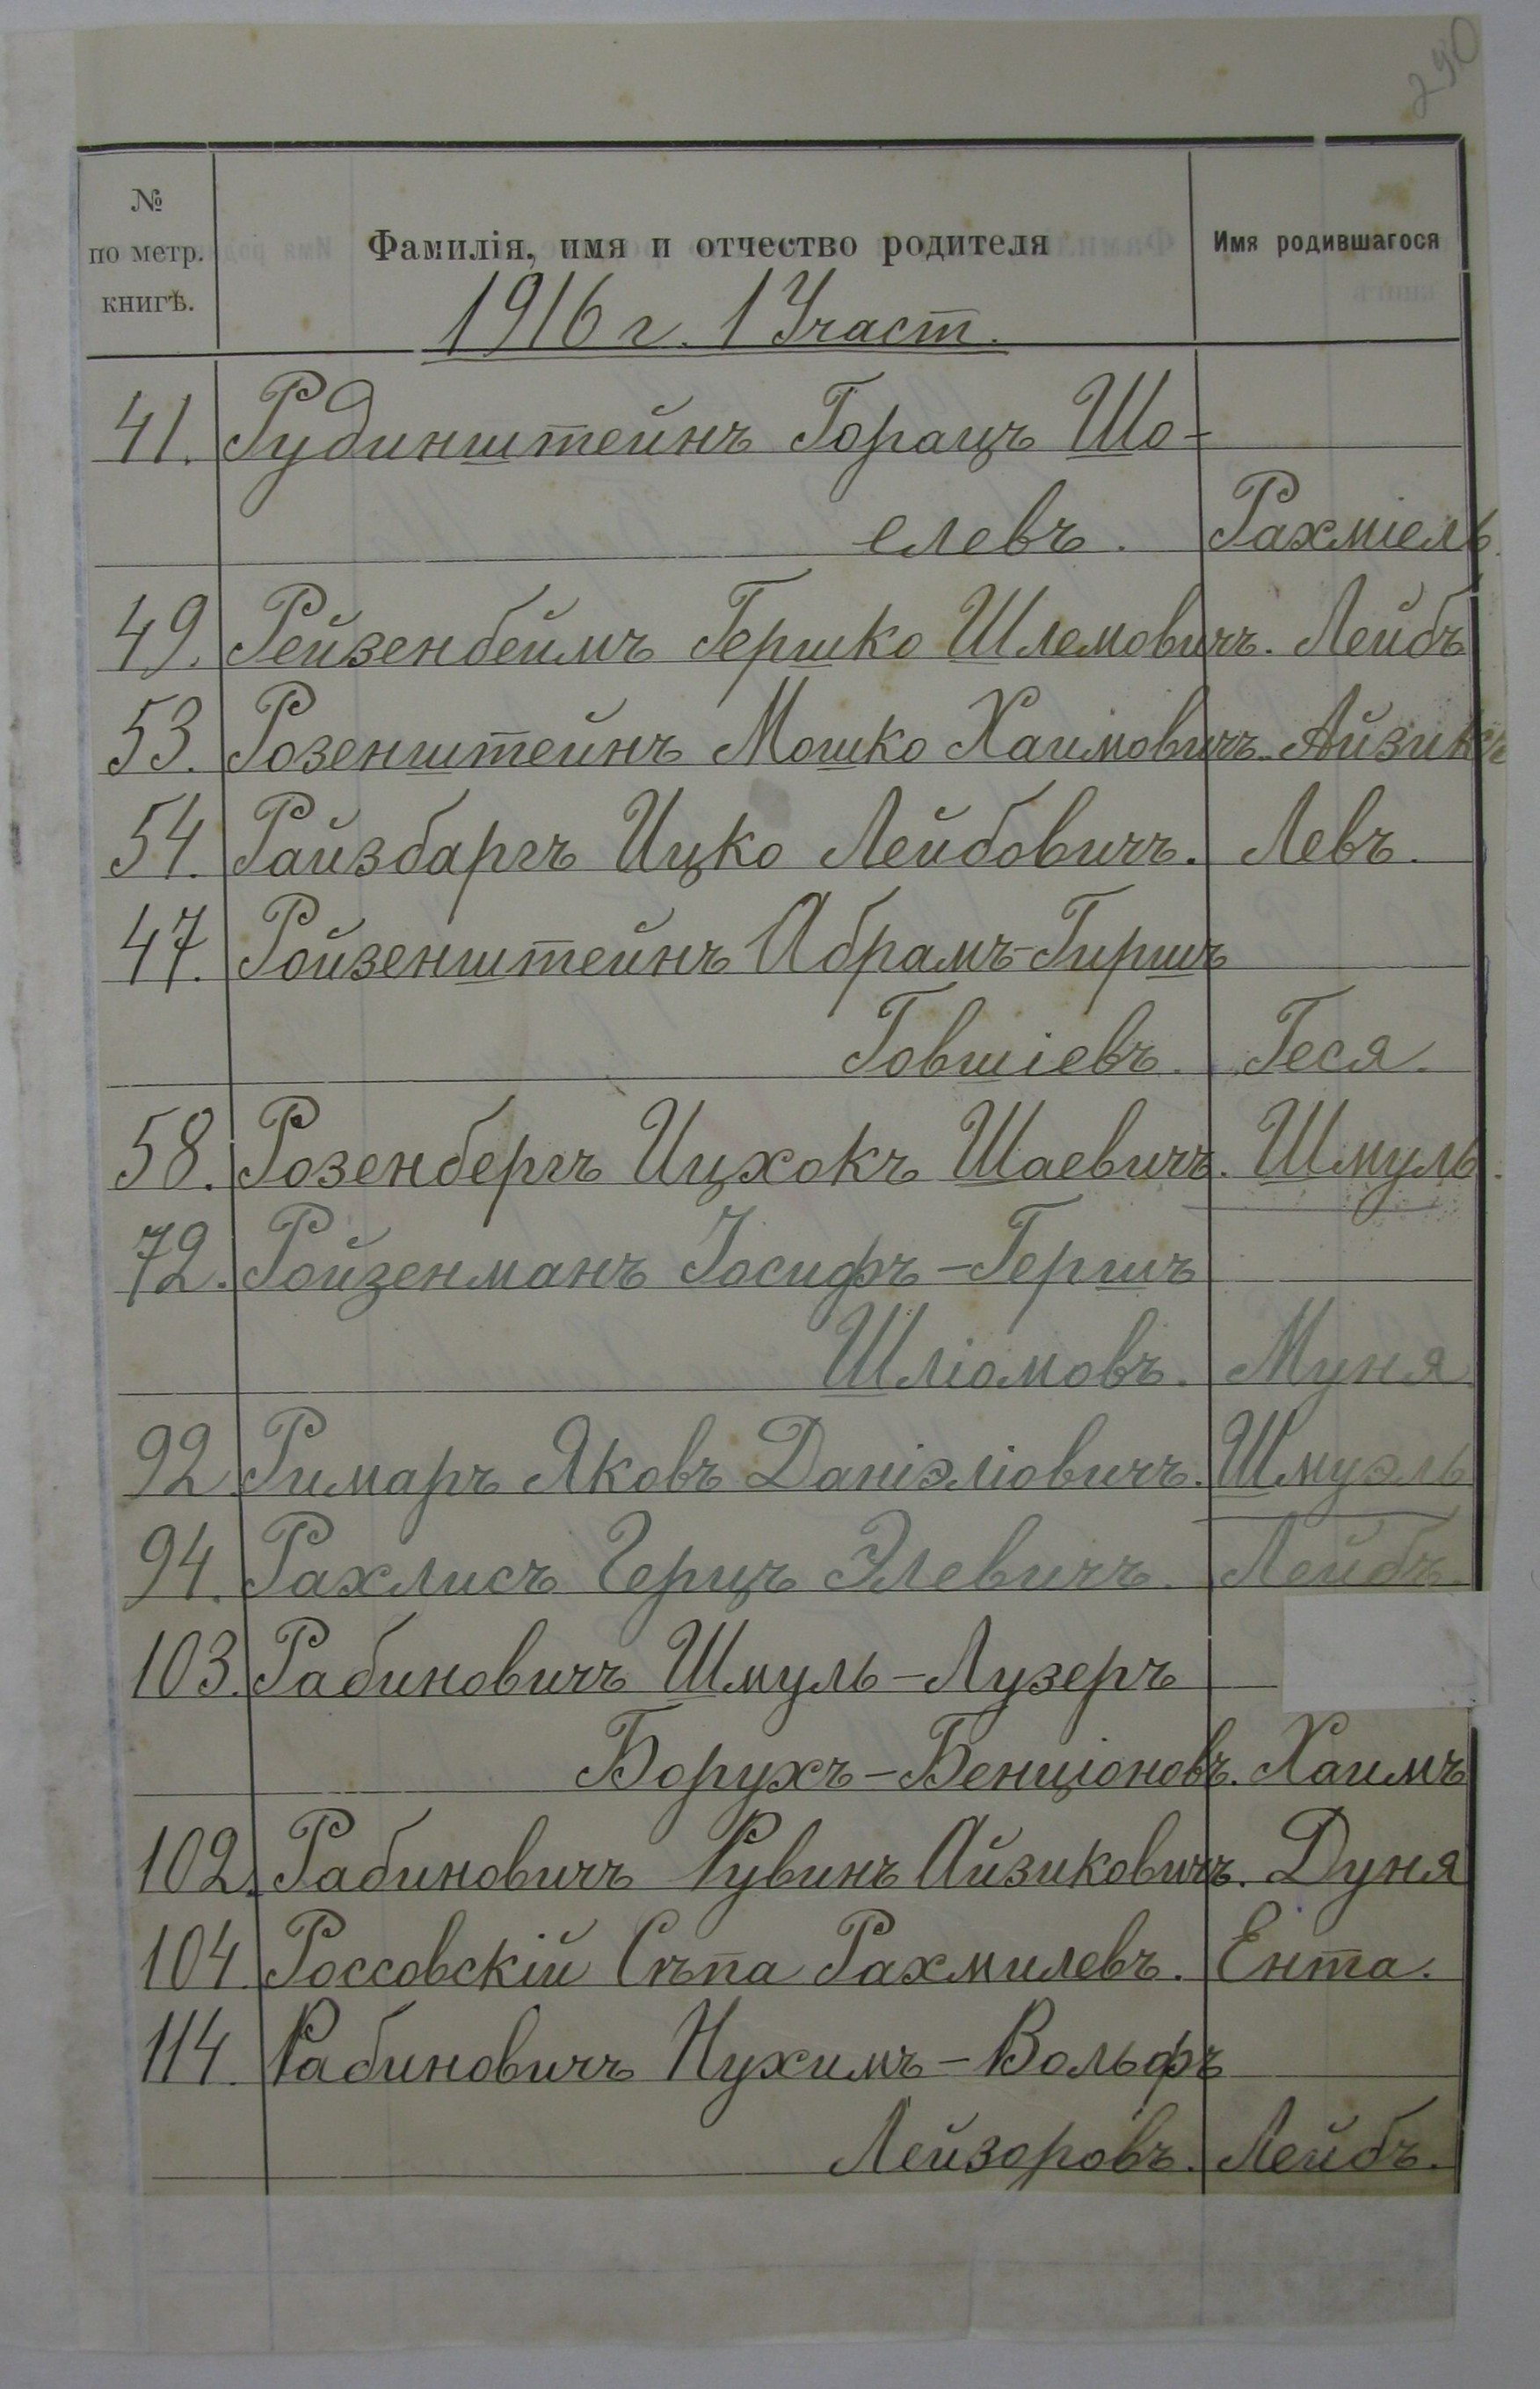 290
№ по метр. книгѣ. Фамилія, имя и отчество родителя Имя родившагося
1916 г. 1 Участ.
41. Рудинштейнъ Горацъ Шо-
елевъ. Рахміель.
49. Рейзенбеймъ Гершко Шлемовичъ. Лейбъ
53. Розенштейнъ Мошко Хаимовичъ. Айзикъ
54. Райзбаргъ Ицко Лейбовичъ. Левъ.
47. Ройзенштейнъ Абрамъ-Гиршъ
Говшіевъ. Геся.
58. Розенбергъ Ицхокъ Шаевичъ. Шмуль.
72. Ройзенманъ Іосифъ-Гершъ
Шліомовъ. Муня
92. Римаръ Яковъ Даніэліовичъ. Шмуэль
94. Рахлисъ Герцъ Элевичъ. Лейбъ.
103. Рабиновичъ Шмуль-Лузеръ
Борухъ-Бенціоновъ. Хаимъ
102. Рабиновичъ Рувинъ Айзиковичъ. Дуня
104. Россовскій Съпа Рахмилевъ. Ента.
114. Рабиновичъ Нухимъ-Вольфъ
Лейзоровъ. Лейбъ.